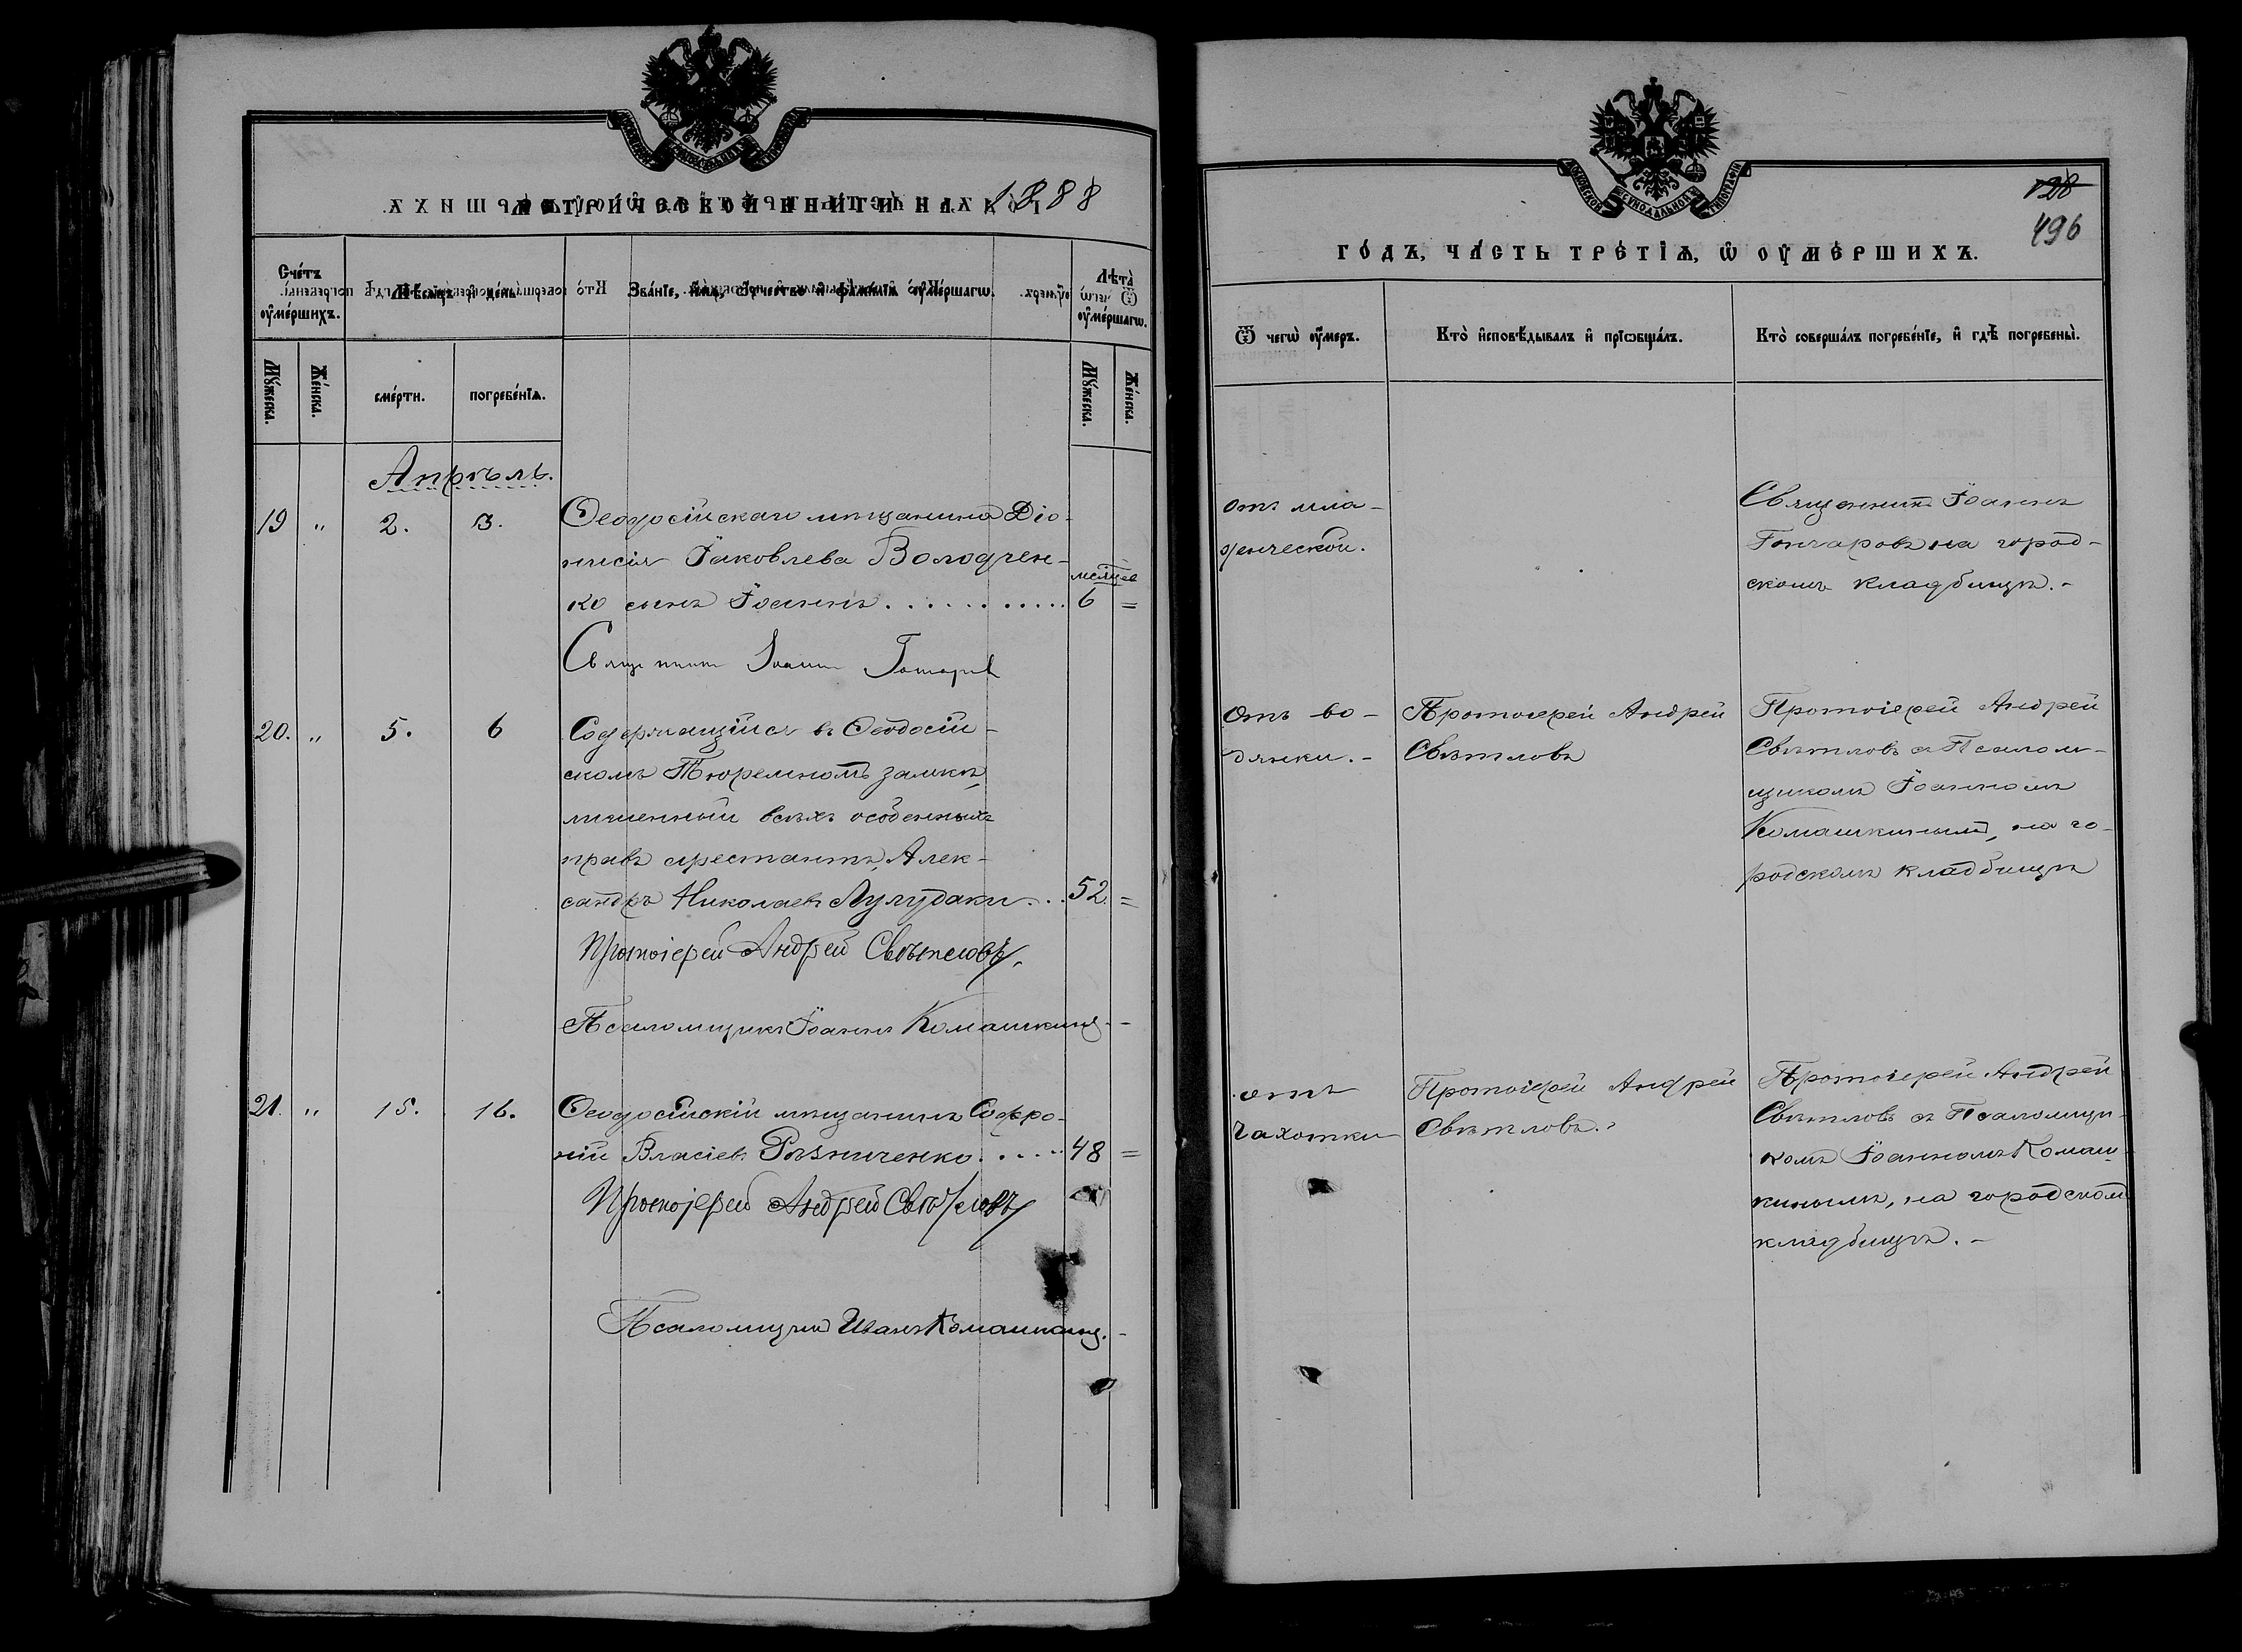 МЕТРИЧЕСКОЙ КНИГИ НА 1888
Счетъ оумершихъ.
Мѣсяцъ и день
Званіе, имя, отчество и фамилія оумершагѡ.
Лѣта оумершагѡ.
Мужеска.
Женска.
смерти.
погребенія.
Мужеска.
Женска.
Апрѣль.
19 " 2. 3. Ѳеодосійскаго мѣщанина Діо-
нисія Іаковлева Володчен-
месяцев
ко сынъ Іоаннъ . . . . . . . . . . . 6 =
Священникъ Іоаннъ Гончаровъ
20. " 5. 6 Содержащійся въ Ѳеодосій-
скомъ Тюремномъ замкѣ,
лишенный всѣхъ особенныхъ
правъ арестантъ, Алек-
сандръ Николаевъ Лулудаки . . . 52. =
Протоіерей Андрей Свѣтловъ.
Псаломщикъ Іоаннъ Комашкинъ. -
21. " 15. 16. Ѳеодосійскій мѣщанинъ Софро-
ній Власіевъ Рѣзниченко . . . . . 48 =
Протоіерей Андрей Свѣтловъ
Псаломщикъ Иванъ Комашкинъ. -
128
496
ГОДЪ, ЧАСТЬ ТРЕТІЯ, Ѡ ОУМЕРШИХЪ.
Ѿ чегѡ оумеръ.
Кто исповѣдывалъ и пріобщалъ.
Кто совершалъ погребеніе, и гдѣ погребены.
Отъ мла-
денческой.
Священникъ Іоаннъ
Гончаровъ на город-
скомъ кладбищѣ. -
Отъ во-
дянки. -
Протоіерей Андрей
Свѣтловъ
Протоіерей Андрей
Свѣтловъ съ Псалом-
щикомъ Іоанномъ
Комашкинымъ, на го-
родскомъ кладбищѣ
отъ
чахотки
Протоіерей Андрей
Свѣтловъ. -
Протоіерей Андрей
Свѣтловъ съ Псаломщи-
комъ Іоанномъ Комаш-
кинымъ, на городскомъ
кладбищѣ. -